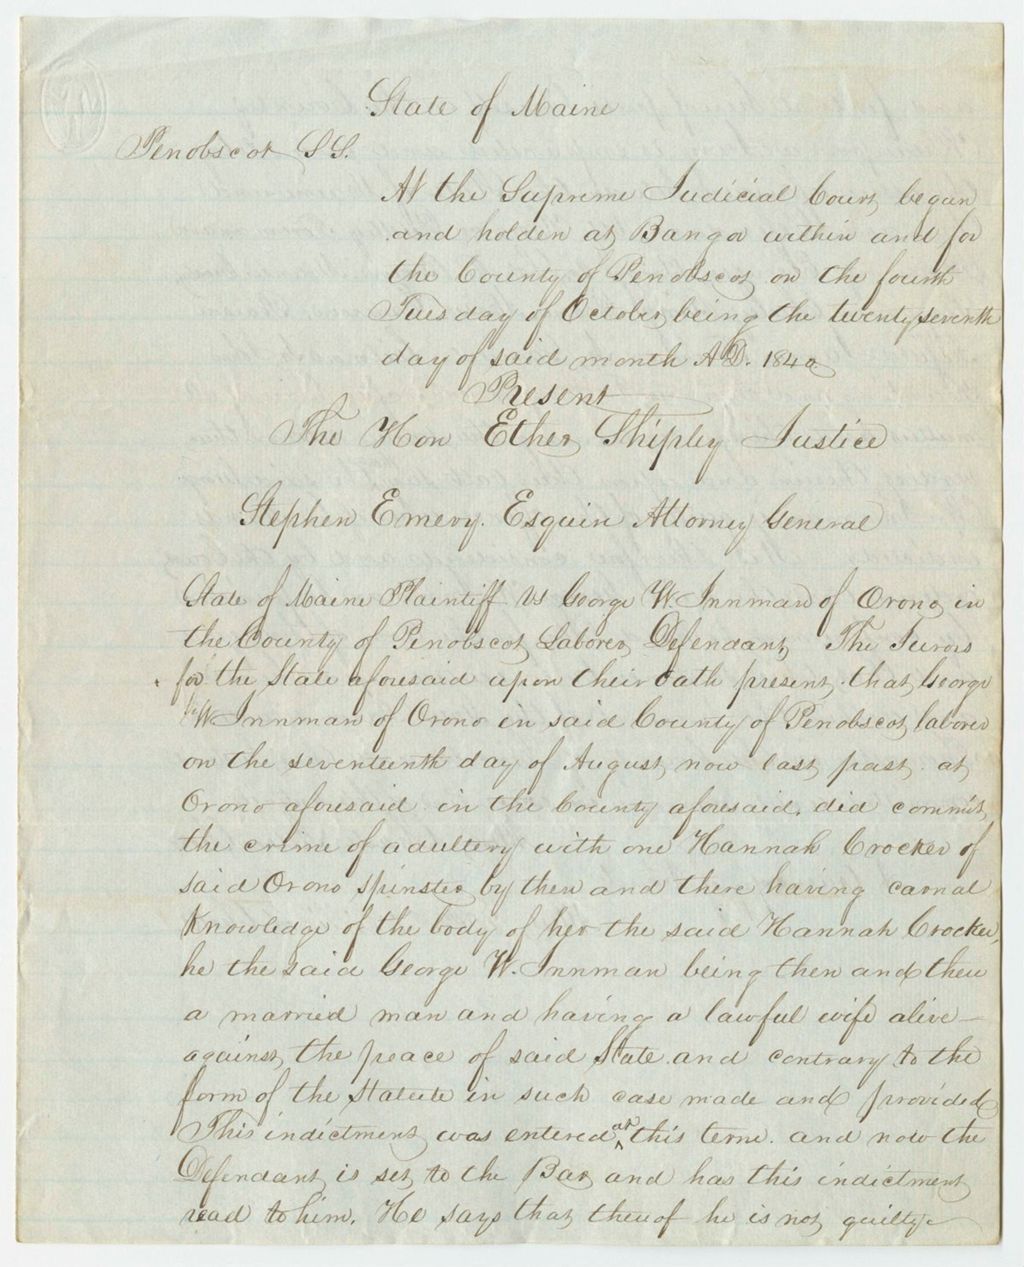 State of Maine
Penobscot S S.
At the Supreme Judicial Court, begun
and holden at Bangor within and for
the County of Penobscot, on the fourth
Tuesday of October, being the twenty seventh
day of said month A.D. 1840
Present
The Hon Ether Shipley Justice
Stephen Emery. Esquire Attorney General
State of Maine Plaintiff vs George W Innman of Orono, in
the County of Penobscot, Laborer, Defendant, The Jurors
for the State aforesaid upon their oath present, that, George
W Innman of Orono in said County of Penobscot, laborer
on the seventeenth day of August, now last, past, at
Orono aforesaid in the County aforesaid, did commit,
the crime of adultery with one Hannah Crocker of
said Orono spinster by then and there having carnal
Knowledge of the body of her the said Hannah Crocker,
he the said George W. Innman being then and there
a married man and having a lawful wife alive—
against, the peace of said State. and contrary to the
form of the Statute in such case made and provided
This indictment, was entered at this term. and now the
Defendant, is set, to the Bar, and has this indictment
read to him. He says that, thereof he is not, guilty